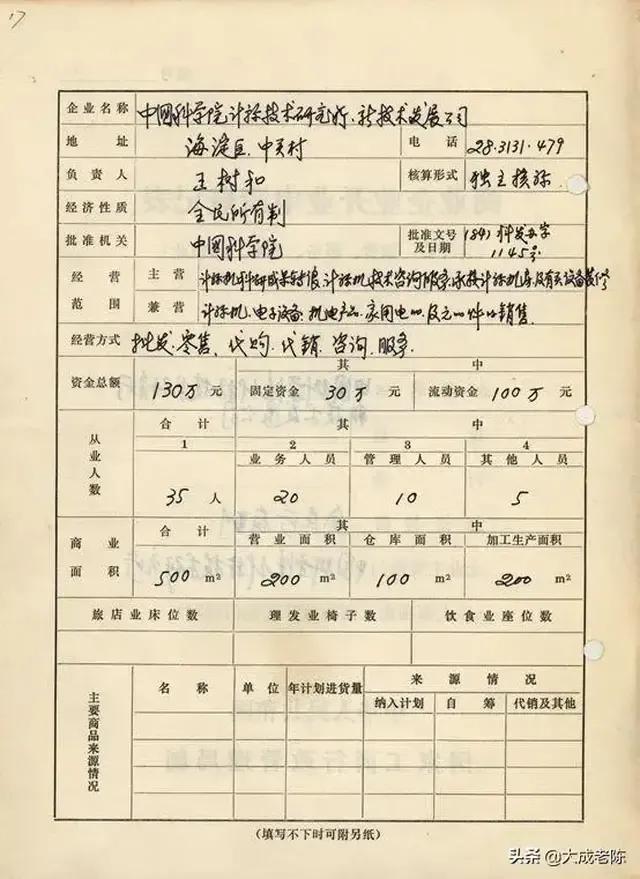 17
企业名称 中国科学院计算技术研究所新技术发展公司
地址 海淀区中关村 电话 28.3131·479
负责人 王树和 核算形式 独立核算
经济性质 全民所有制
批准机关 中国科学院 批准文号及日期 (84)科发办字1145号
经营范围 主营 计算机科研成果转让 计算机技术咨询服务 承接计算机房及有关设备装修
兼营 计算机、电子设备、机电产品、家用电器、及元器件的销售.
经营方式 批发.零售.代购.代销.咨询.服务
资金总额 130万元 其中 固定资金 30万元 流动资金 100万元
从业人数 合计 其中
1 2 3 4
业务人员 管理人员 其他人员
35人 20 10 5
商业面积 合计 其中
营业面积 仓库面积 加工生产面积
500 m² 200 m² 100 m² 200 m²
旅店业床位数 理发业椅子数 饮食业座位数
主要商品来源情况 名称 单位 年计划进货量 来源情况
纳入计划 自筹 代销及其他
(填写不下时可附另纸)
头条 @大成老陈